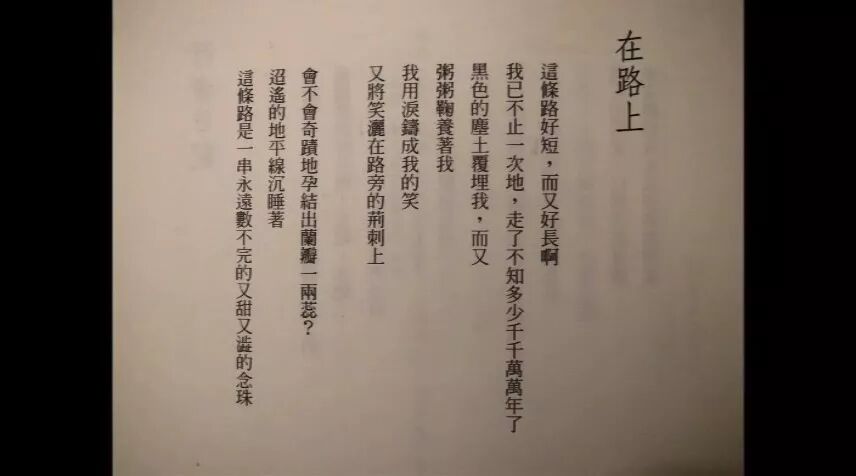 在路上
這條路好短，而又好長啊
我已不止一次地，走了不知多少千千萬萬年了
黑色的塵土覆埋我，而又
粥粥鞠養著我
我用淚鑄成我的笑
又將笑灑在路旁的荊刺上
會不會奇蹟地孕結出蘭瓣一兩蕊？
迢遙的地平線沉睡著
這條路是一串永遠數不完的又甜又澁的念珠